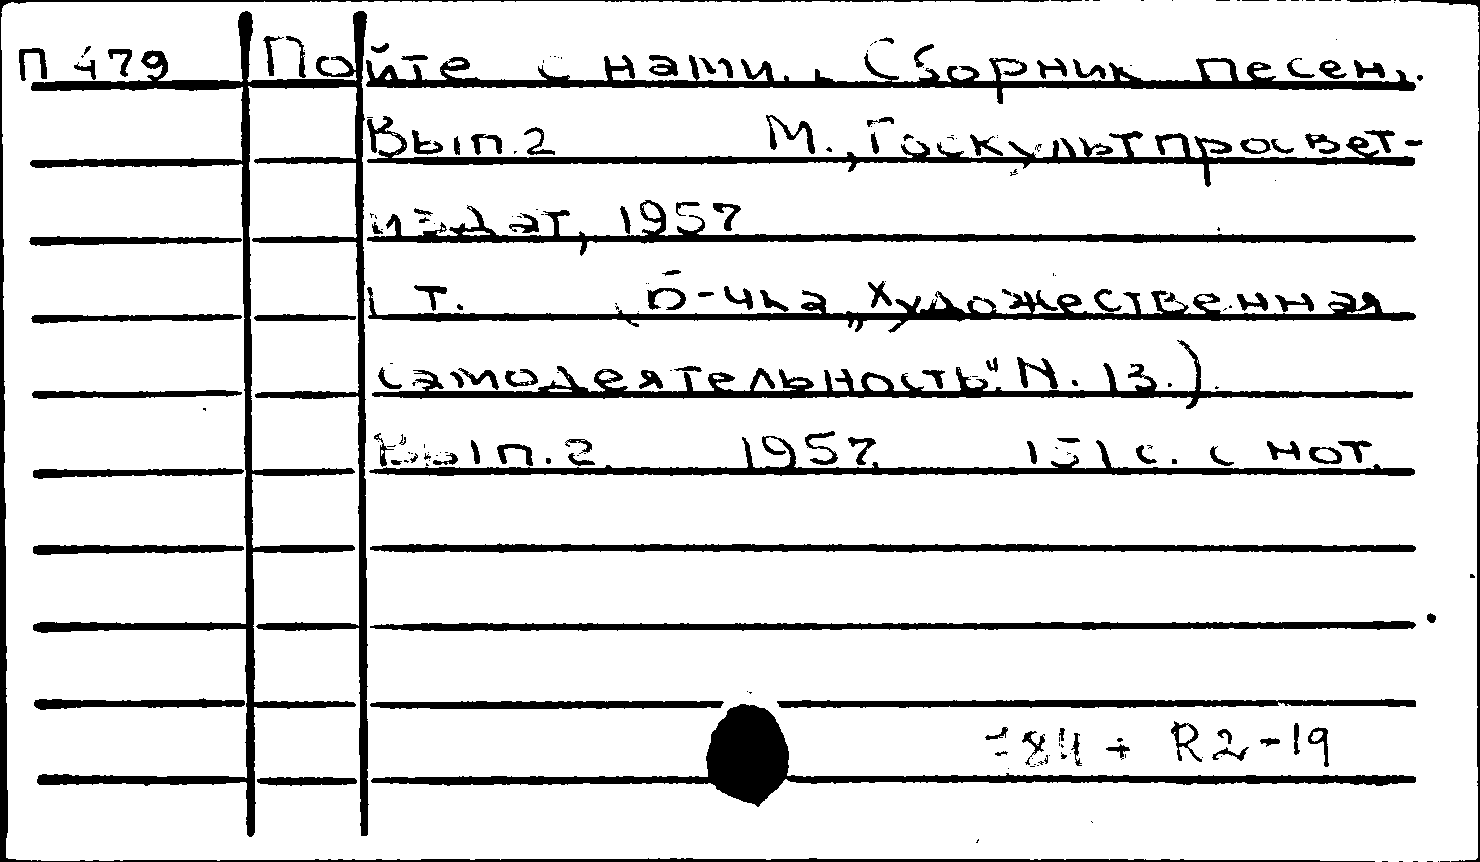 П 479 Пойте с нами. Сборник песен.
Вып.2 М., Госкультпросвет-
издат, 1957
1 т. (Б-чка „Художественная
самодеятельность". N. 13.)
Вып.2. 1957. 151 с. с нот.
+ R2-19